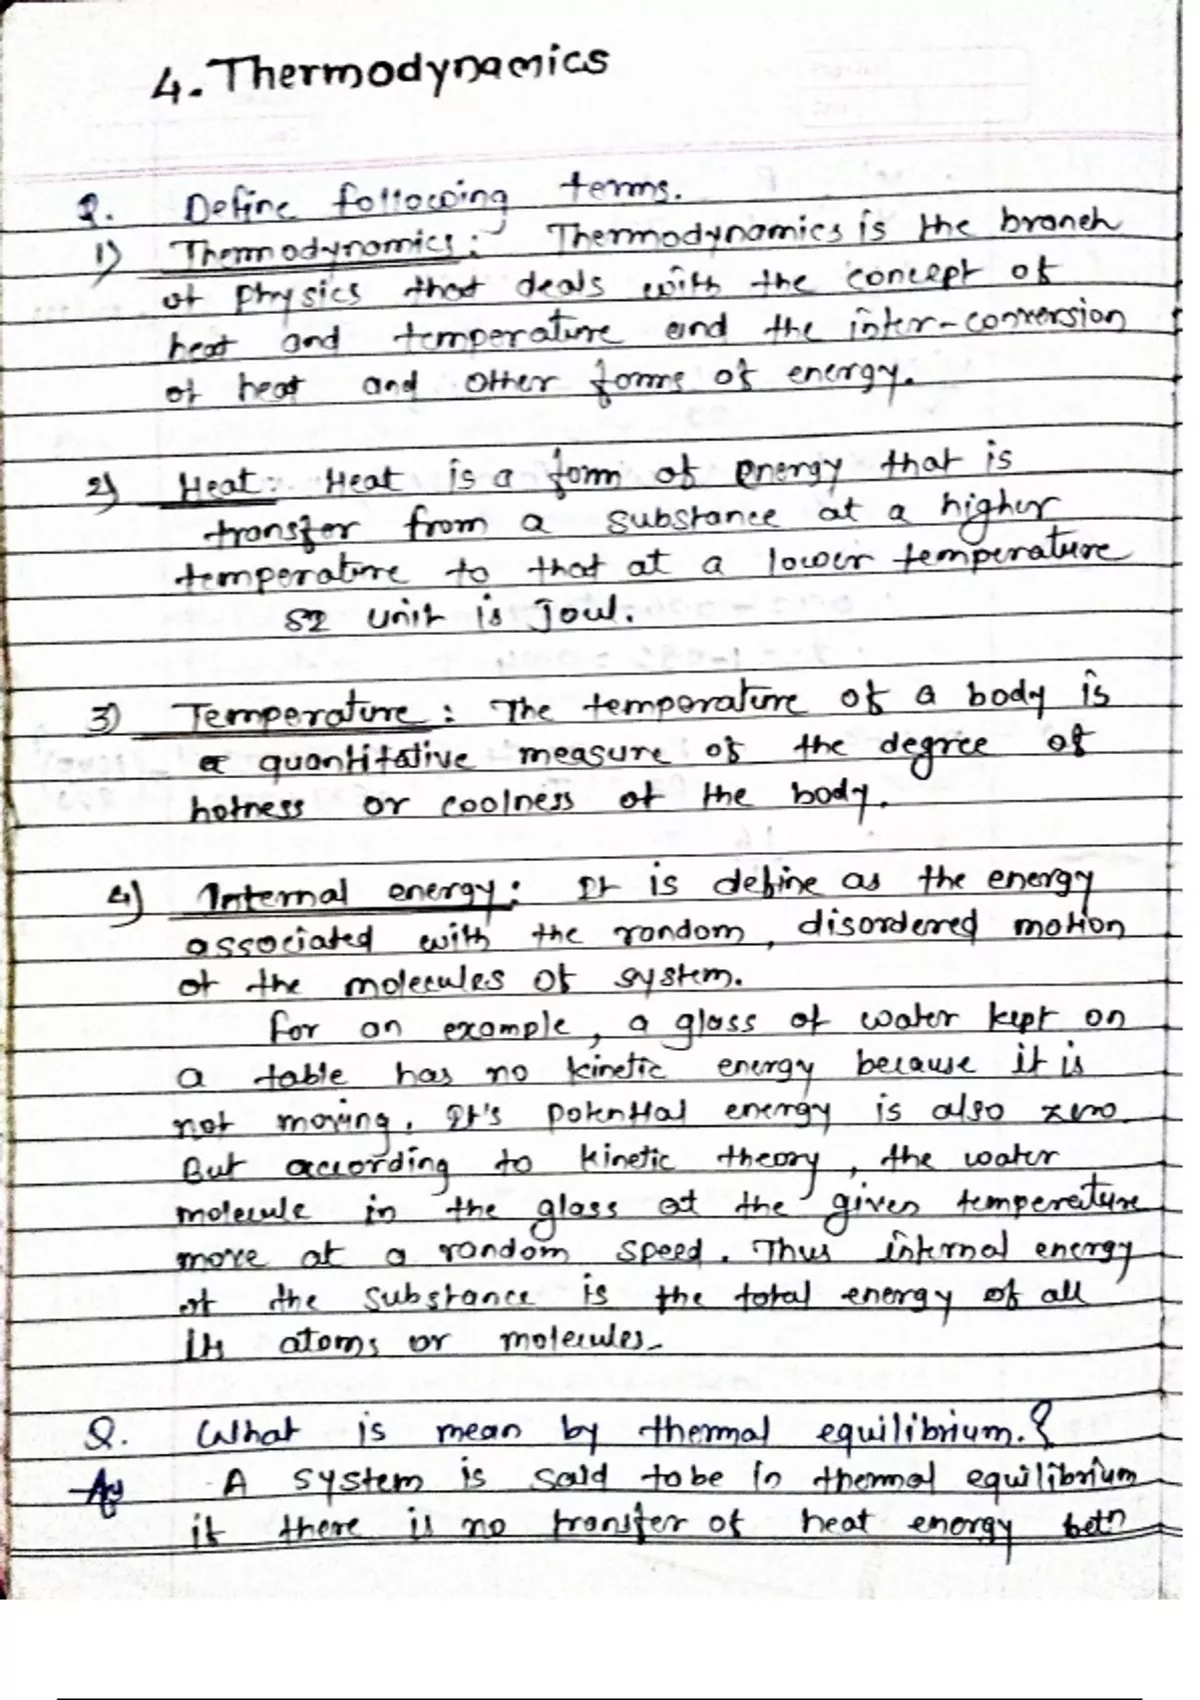 4. Thermodynamics
Q. Define following terms.
1) Thermodynamics : Thermodynamics is the branch
of physics that deals with the concept of
heat and temperature and the inter-conversion
of heat and other forms of energy.
2) Heat : Heat is a form of energy that is
transfer from a substance at a higher
temperature to that at a lower temperature
SI unit is Joul.
3) Temperature : The temperature of a body is
a quantitative measure of the degree of
hotness or coolness of the body.
4) Internal energy : It is define as the energy
associated with the random, disordered motion
of the molecules of system.
For an example, a glass of water kept on
a table has no kinetic energy because it is
not moving. It's potential energy is also zero.
But according to kinetic theory, the water
molecule in the glass at the given temperature
move at a random speed. Thus internal energy
of the substance is the total energy of all
its atoms or molecules.
Q. What is mean by thermal equilibrium.?
A system is said to be in thermal equilibrium
if there is no transfer of heat energy betn